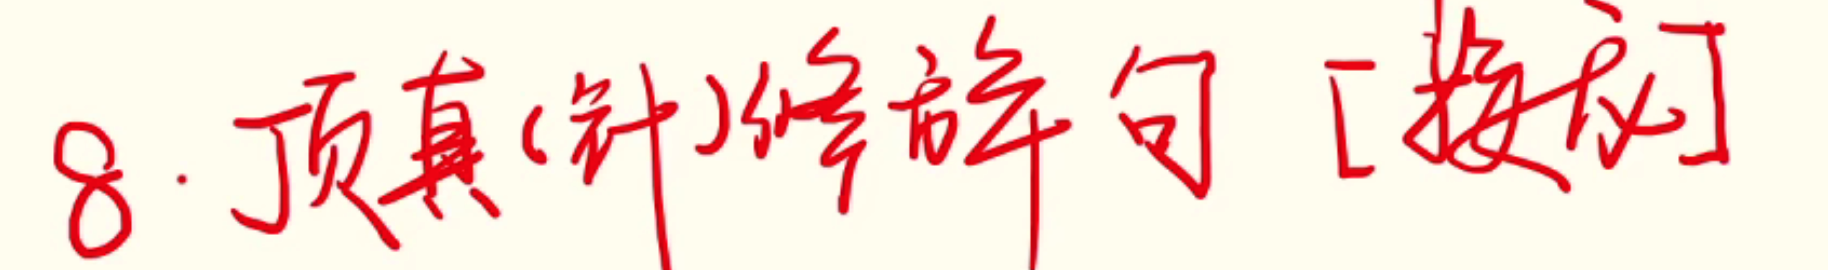 8.顶真(针)修辞句[接龙]